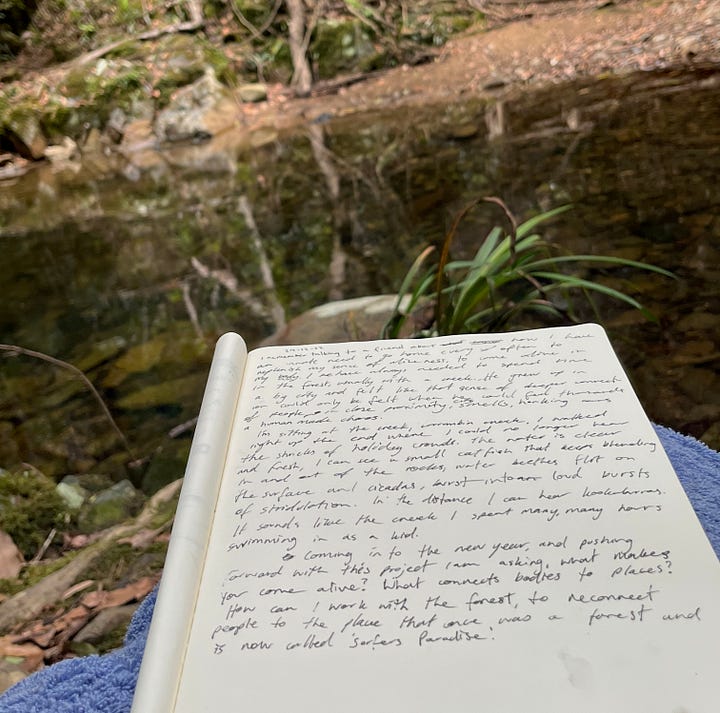 I remember talking to a friend about how I have
an innate need to go home every so often to
replenish my sense of aliveness. to come alive in
my body. I've always needed to spend time
in the forest, usually with a creek. He grew up in
a big city and felt like that sense of deeper connect
ion could only be felt when he could feel thousands
of people in close proximity, smells, honking cars
a human made chaos.
Im sitting at the creek, currumbin creek, I walked
right up the end where I could no longer hear
the shrieks of holiday crowds. The water is clear
and fresh, I can see a small catfish that keeps blending
in and out of the rocks, water beetles flit on
the surface and cicadas, burst into loud bursts
of stridulation. In the distance I can hear kookaburras.
It sounds like the creek I spent many, many hours
swimming in as a kid.
coming into the new year, and pushing
forward with this project I am asking, what makes
you come alive? What connects bodies to places?
How can I work with the forest, to reconnect
people to the place that once was a forest and
is now called 'Surfers Paradise'.